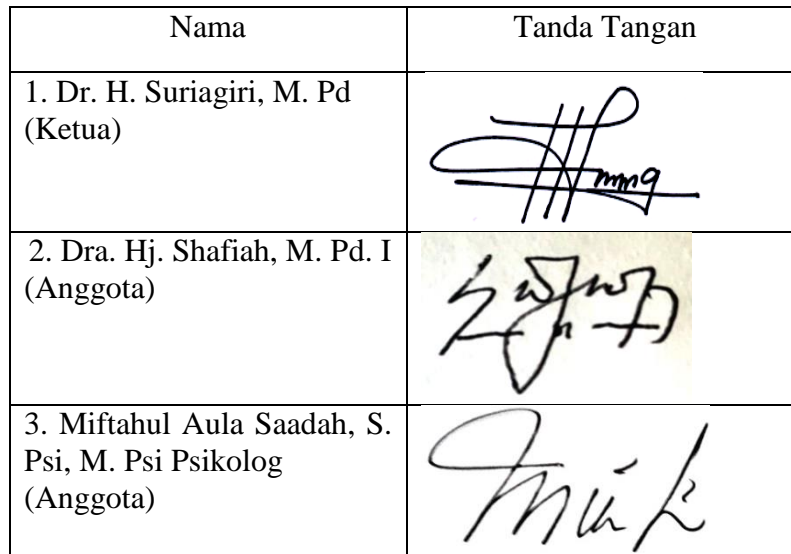 Nama
Tanda Tangan
1. Dr. H. Suriagiri, M. Pd
(Ketua)
2. Dra. Hj. Shafiah, M. Pd. I
(Anggota)
3. Miftahul Aula Saadah, S.
Psi, M. Psi Psikolog
(Anggota)